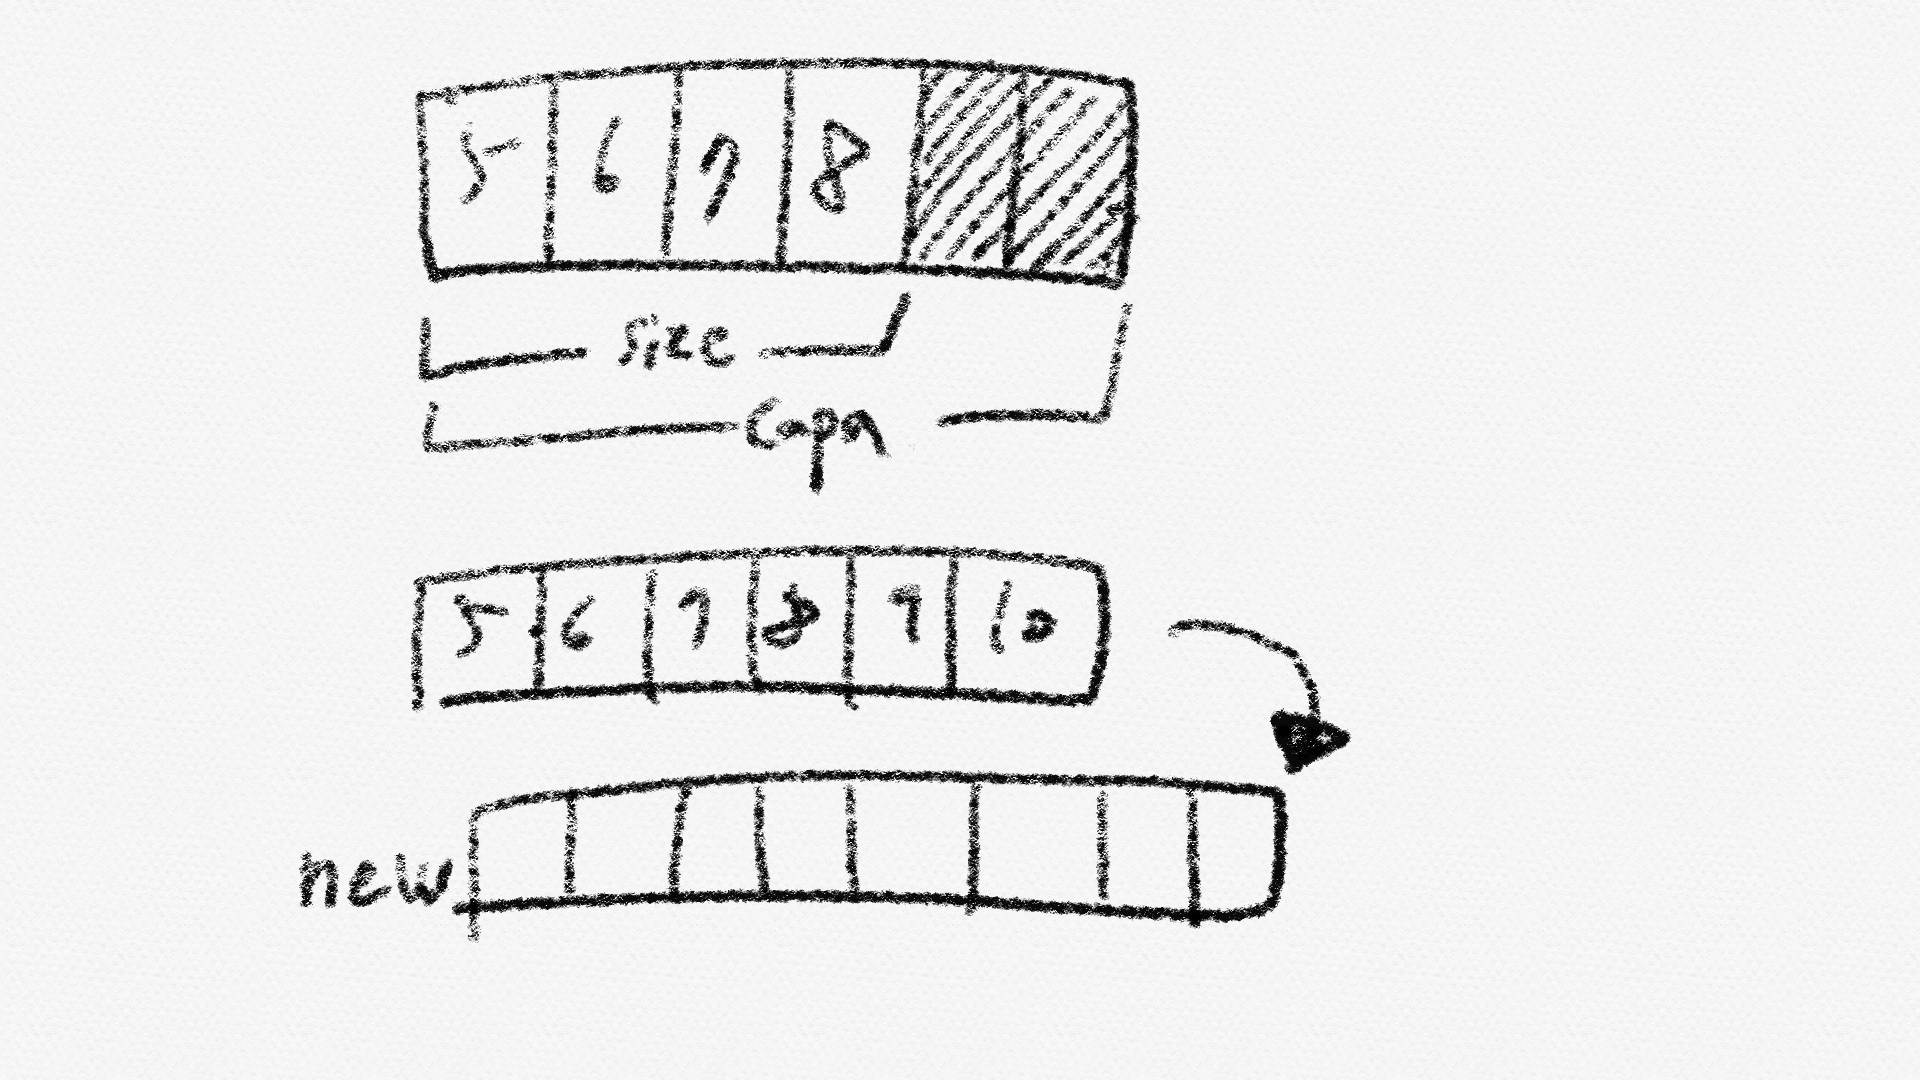 5 6 7 8
size
capa
5 6 7 8 9 10
new